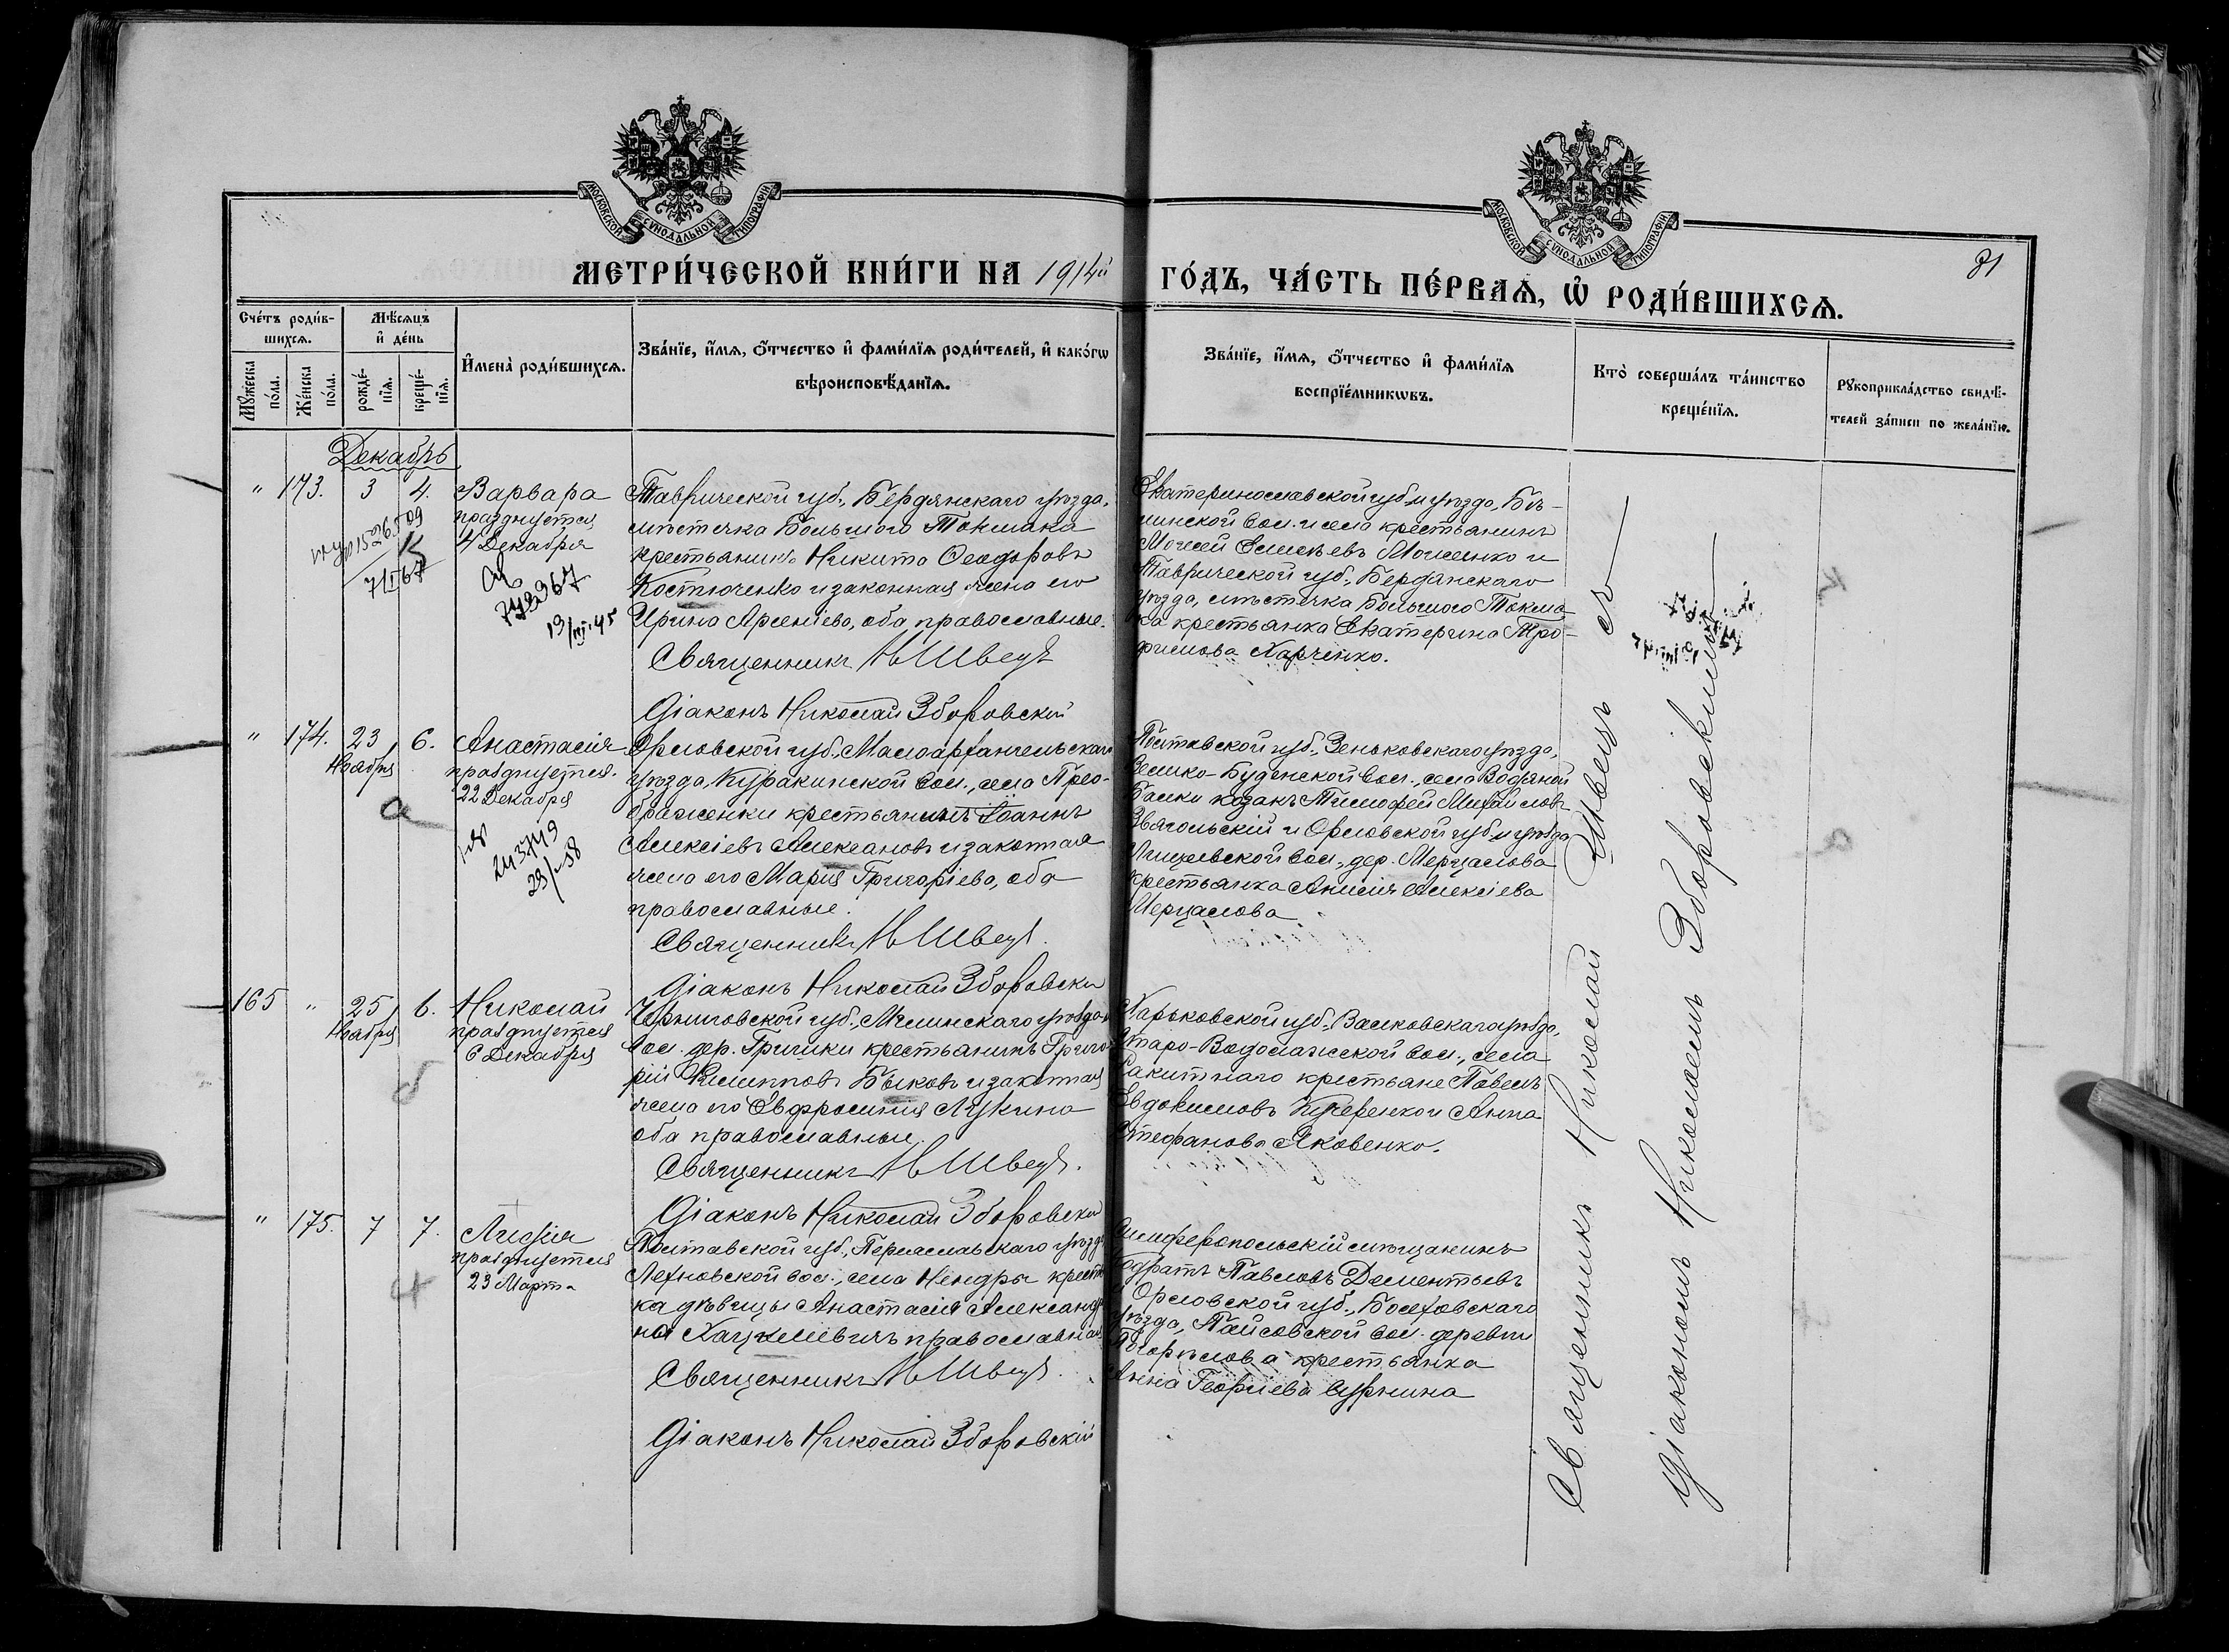 МОСКОВСКОЙ СѴНОДАЛЬНОЙ ТИПОГРАФІИ
МОСКОВСКОЙ СѴНОДАЛЬНОЙ ТИПОГРАФІИ
81
МЕТРИ́ЧЕСКОЙ КНИ́ГИ НА 1914й
ГО́ДЪ, ЧА́СТЬ ПЕ́РВАѦ, Ѡ҆ РОДИ́ВШИХСѦ.
Сче́тъ роди́в-
шихсѧ.
Мꙋ́жеска по́ла.
Же́нска по́ла.
Мѣ́сѧцъ
и҆ де́нь
рожде́-
нїѧ.
креще́-
нїѧ.
И҆мена̀ роди́вшихсѧ.
Зва́нїе, и҆́мѧ, ѻ҆́тчество и҆ фами́лїѧ роди́телей, и҆ како́гѡ
вѣроисповѣ́данїѧ.
Зва́нїе, и҆́мѧ, ѻ҆́тчество и҆ фами́лїѧ
воспрїе́мникѡвъ.
Кто̀ соверша́лъ та́инство
креще́нїѧ.
Рꙋкоприкла́дство свидѣ́-
телей за́писи по жела́нїю.
Декабрь
" 173. 3 4.
Варвара
празднуется
4 Декабря
1526509
7/II 67
742367
19/III 45
Таврической губ., Бердянскаго уѣзда,
мѣстечка Большого Токмака
крестьянинъ Никита Ѳеодоровъ
Костюченко и законная жена его
Ирина Арсеніева, оба православные.
Священникъ Н Швецъ
Діаконъ Николай Зборовскій
Екатеринославской губ. и уѣзда, Бѣ-
линской вол. и села крестьянинъ
Моѵсей Моисеенко и
Таврической губ., Бердянскаго
уѣзда, мѣстечка Большого Токма-
ка крестьянка Екатерина Тро-
фимова Харченко.
" 174. 23 Ноября 6.
Анастасія
празднуется
22 Декабря
а
243749
29/ 58
Орловской губ., Малоархангельскаго
уѣзда, Куракинской вол., села Прео-
браженки крестьянинъ Іоаннъ
Алексіевъ Алексановъ и законная
жена его Марія Григоріева, оба
православные.
Священникъ Н Швецъ.
Діаконъ Николай Зборовскій
Полтавской губ., Зеньковскаго уѣзда,
Велико-Буденской вол., села Водяной
Балки козакъ Тимоѳей Михайловъ
Звягольскій и Орловской губ. и уѣзда
вол., дер. Мерцалова
крестьянка Анисія Алексіева
Мерцалова
165 " 25 Ноября 6.
Николай
празднуется
6 Декабря
б
Черниговской губ., Мглинскаго уѣзда и
вол. дер. крестьянинъ Григо-
рій Филипповъ Быковъ и законная
жена его Евфросинія Лукина
оба православные.
Священникъ Н Швецъ.
Діаконъ Николай Зборовскій
Харьковской губ., Валковскаго уѣзда,
Старо-Водолажской вол., села
Ракитнаго крестьяне Павелъ
Евдокимовъ и Анна
Стефанова Яковенко.
" 175. 7 7.
Лидія
празднуется
23 Марта
Полтавской губ., Переяславскаго уѣзда
Лехновской вол., села крестьян-
ка дѣвица Анастасія Александро-
на Хацкелевичъ православная
Священникъ Н Швецъ.
Діаконъ Николай Зборовскій
Симферопольскій мѣщанинъ
Кодратъ Павловъ Дементьевъ
и Орловской губ., Болховскаго
уѣзда, вол. деревни
крестьянка
Анна Георгіева
Священникъ Николай Швецъ съ
діакономъ Николаемъ Зборовскимъ